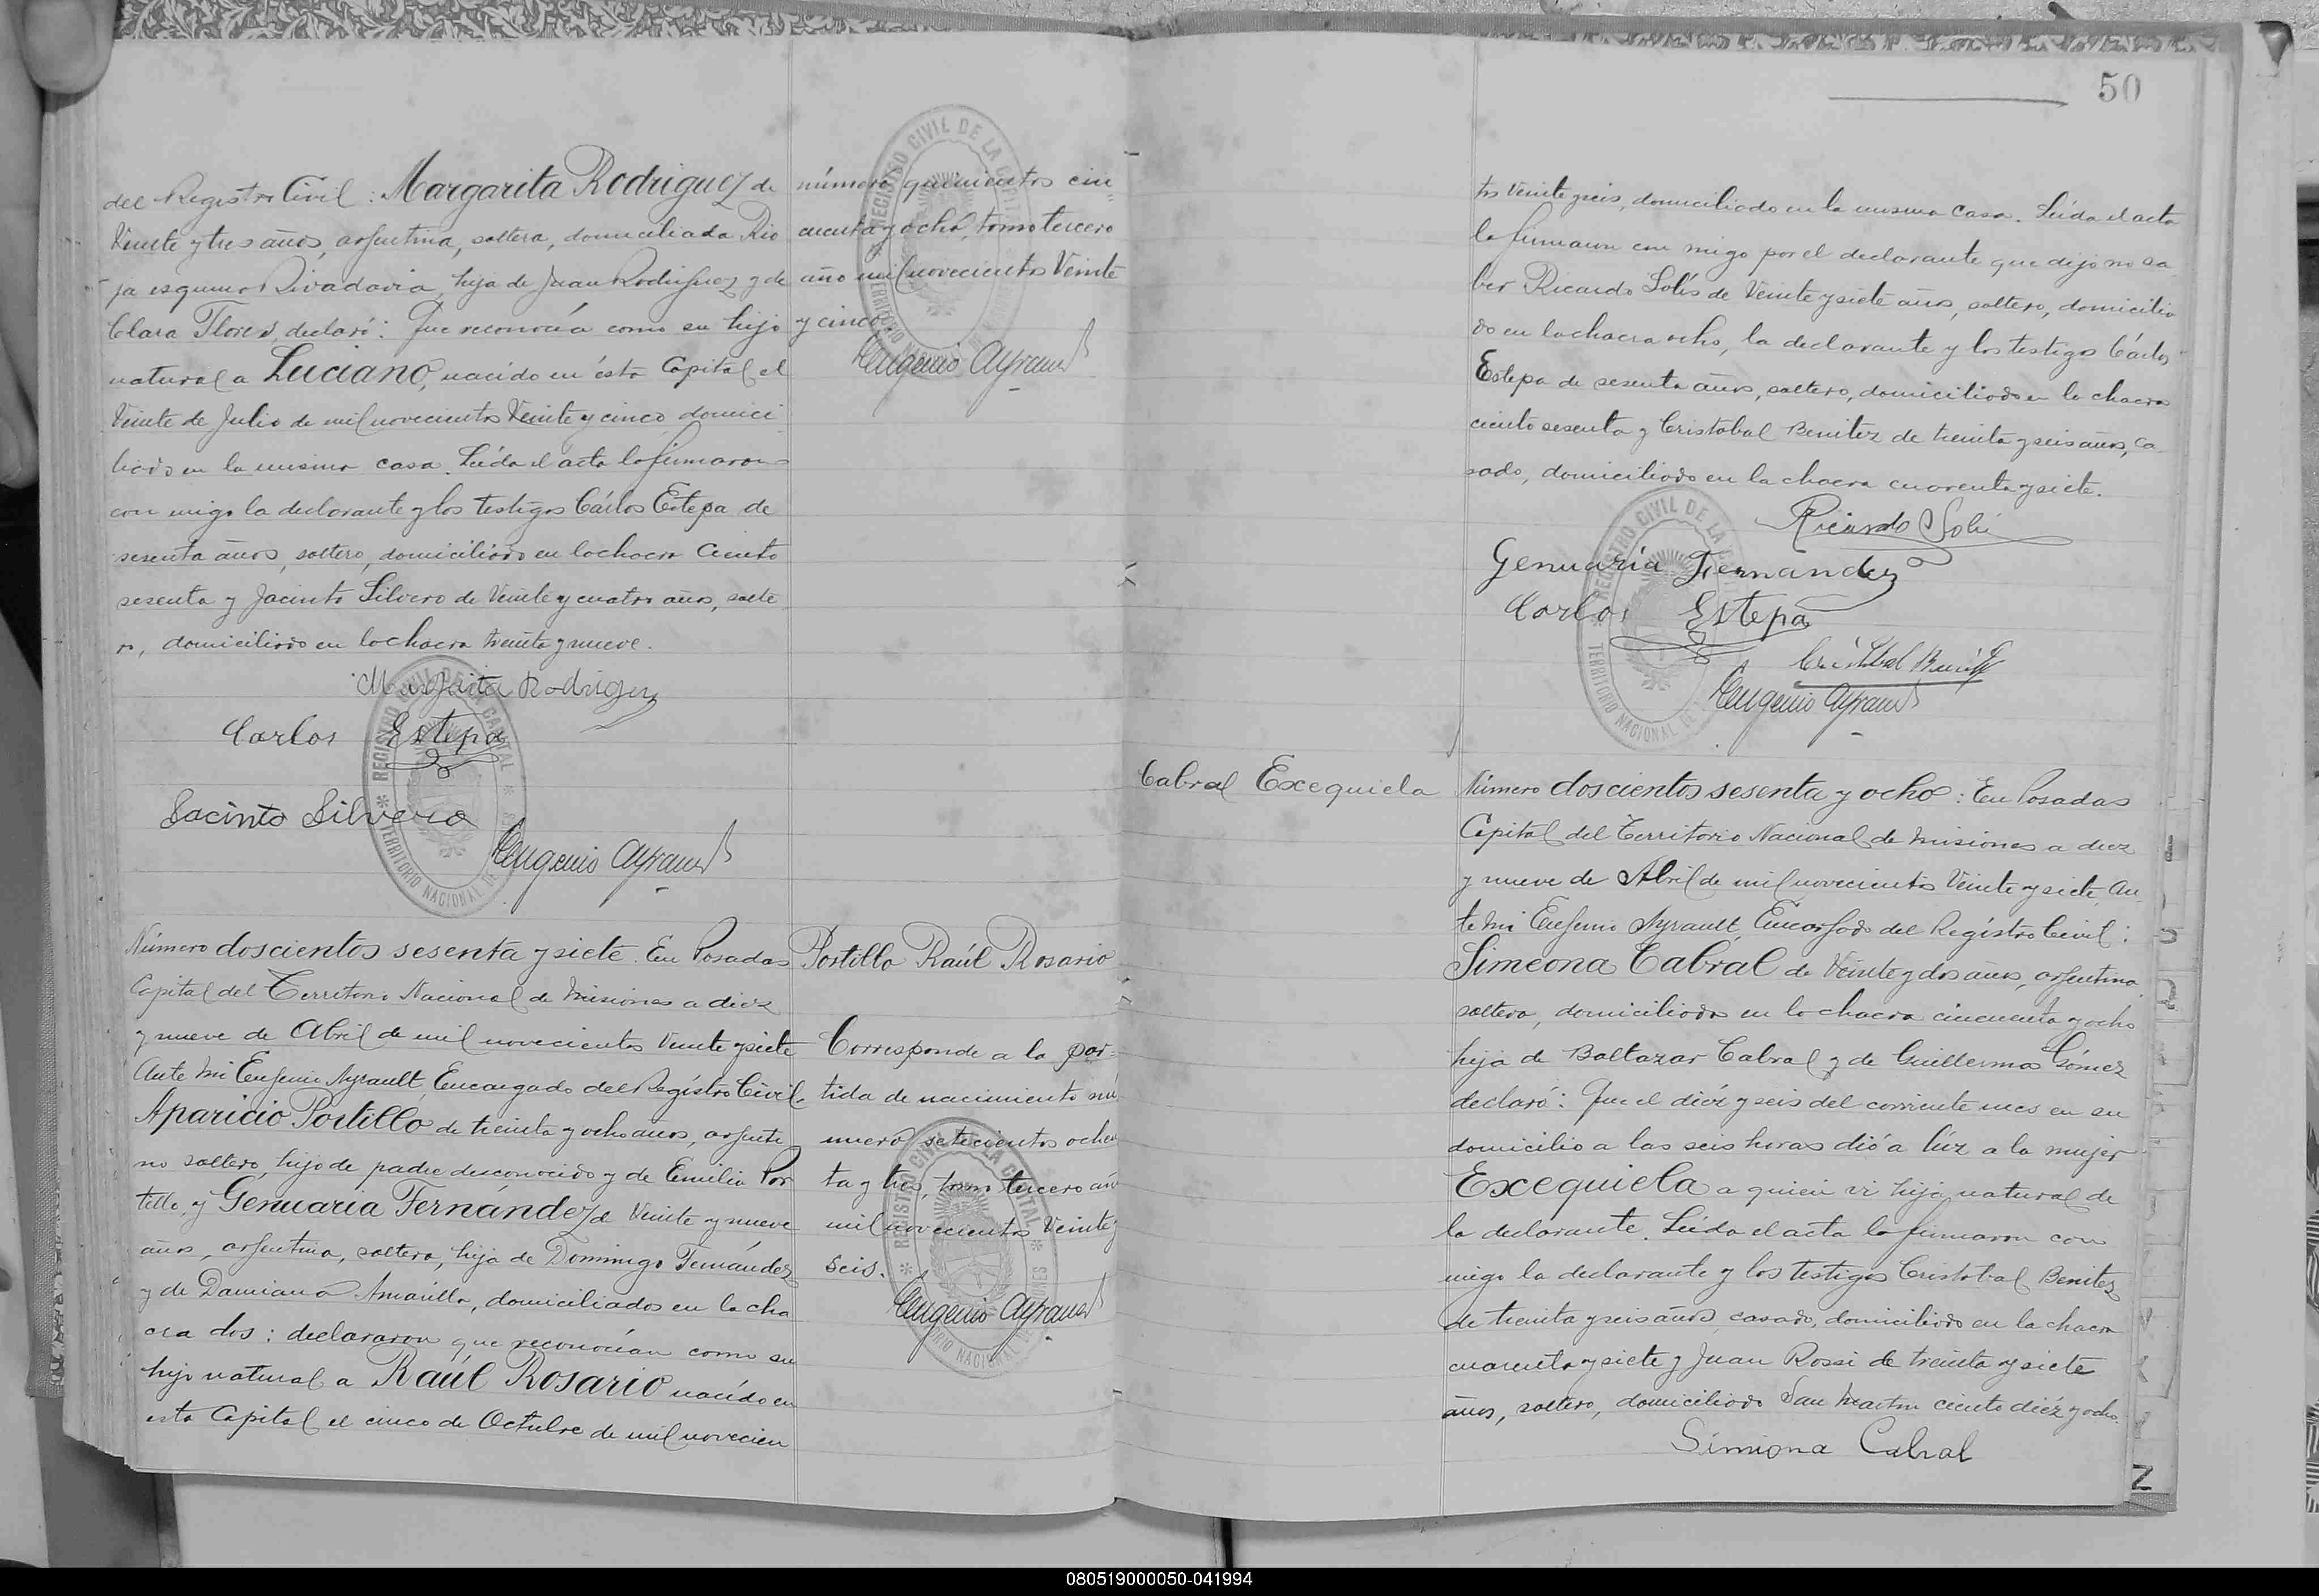 del Registro Civil: Margarita Rodriguez de
Veinte y tres años, argentina, soltera, domiciliada Rio
ja esquina Rivadavia, hija de Juan Rodriguez y de
Clara Flores, declaró: Que reconocía como su hijo
natural a Luciano, nacido en ésta Capital el
Veinte de Julio de mil novecientos Veinte y cinco domici
liado en la misma casa. Leída el acta la firmaron
con migo la declarante y los testigos Cárlos Estepa de
sesenta años, soltero, domiciliado en la chacra Ciento
sesenta y Jacinto Silvero de Veinte y cuatro años, solte
ro, domiciliado en la chacra treinta y nueve.
Margarita Rodriguez
Carlos Estepa
Jacinto Silvero
Eugenio Ayrault
número quinientos cin=
cuenta y ocho, tomo tercero
año mil novecientos Veinte
y cinco.
Eugenio Ayrault
REGISTRO CIVIL DE LA CAPITAL
TERRITORIO NACIONAL DE MISIONES
Número doscientos sesenta y siete. En Posadas
Capital del Territorio Nacional de Misiones a diez
y nueve de Abril de mil novecientos Veinte y siete
Ante Mi Eugenio Ayrault, Encargado del Registro Civil.
Aparicio Portillo de treinta y ocho años, argenti
no soltero, hijo de padre desconocido y de Emilia Por
tillo, y Genuaria Fernández de Veinte y nueve
años, argentina, soltera, hija de Domingo Fernández
y de Damiana Amarilla, domiciliados en la cha
cra dos: declararon que reconocían como su
hijo natural a Raúl Rosario nacido en
esta Capital el cinco de Octubre de mil novecien
Portillo Raúl Rosario
Corresponde a la par=
tida de nacimiento nú
mero setecientos ochen
ta y tres, tomo tercero año
mil novecientos Veinte y
seis.
Eugenio Ayrault
50
tos Veinte y seis, domiciliado en la misma casa. Leída el acta
la firmaron con migo por el declarante que dijo no sa
ber Ricardo Solís de Veinte y siete años, soltero, domicilia
do en la chacra ocho, la declarante y los testigos Cárlos
Estepa de sesenta años, soltero, domiciliado en la chacra
ciento sesenta y Cristobal Benitez de treinta y seis años, ca
sado, domiciliado en la chacra cuarenta y siete.
Ricardo Solis
Genuaria Fernandez
Carlos Estepa
Cristobal Benitez
Eugenio Ayrault
Cabral Exequiela
Número doscientos sesenta y ocho: En Posadas
Capital del Territorio Nacional de Misiones a diez
y nueve de Abril de mil novecientos Veinte y siete, An
te Mi Eugenio Ayrault, Encargado del Registro Civil:
Simeona Cabral de Veinte y dos años, argentina
soltera, domiciliada en la chacra cincuenta y ocho
hija de Baltazar Cabral y de Guillerma Gómez
declaró: Que el diéz y seis del corriente mes en su
domicilio a las seis horas dió a lúz a la mujer
Exequiela a quien vi hija natural de
la declarante. Leída el acta la firmaron con
migo la declarante y los testigos Cristobal Benitez
de treinta y seis años, casado, domiciliado en la chacra
cuarenta y siete y Juan Rossi de treinta y siete
años, soltero, domiciliado San Martin ciento diéz y ocho.
Simiona Cabral
080519000050-041994